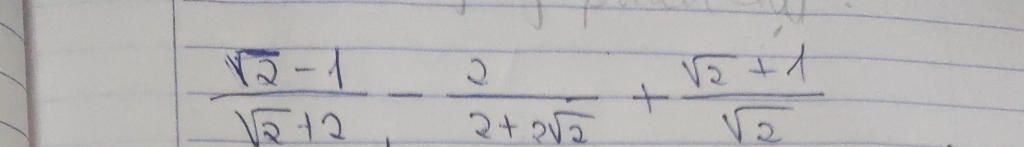 (√2 - 1)/(√2 + 2) - 2/(2 + 2√2) + (√2 + 1)/√2